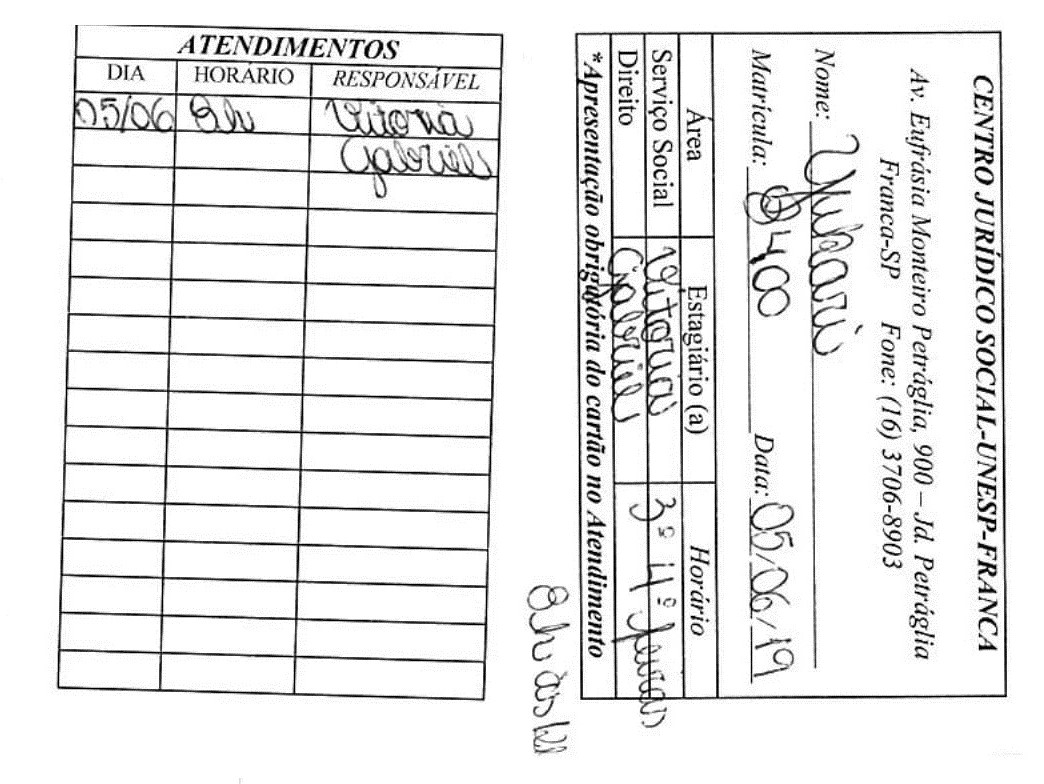 ATENDIMENTOS
DIA HORÁRIO RESPONSÁVEL
05/06 8h Vitoria
Gabriel
CENTRO JURÍDICO SOCIAL-UNESP-FRANCA
Av. Eufrásia Monteiro Petráglia, 900 – Jd. Petráglia
Franca-SP Fone: (16) 3706-8903
Nome: Yukari
Matrícula: 8400 Data: 05/06/19
Área Estagiário (a) Horário
Serviço Social Vitoria 3º 4º feiras
Direito Gabriel
*Apresentação obrigatória do cartão no Atendimento
8h às